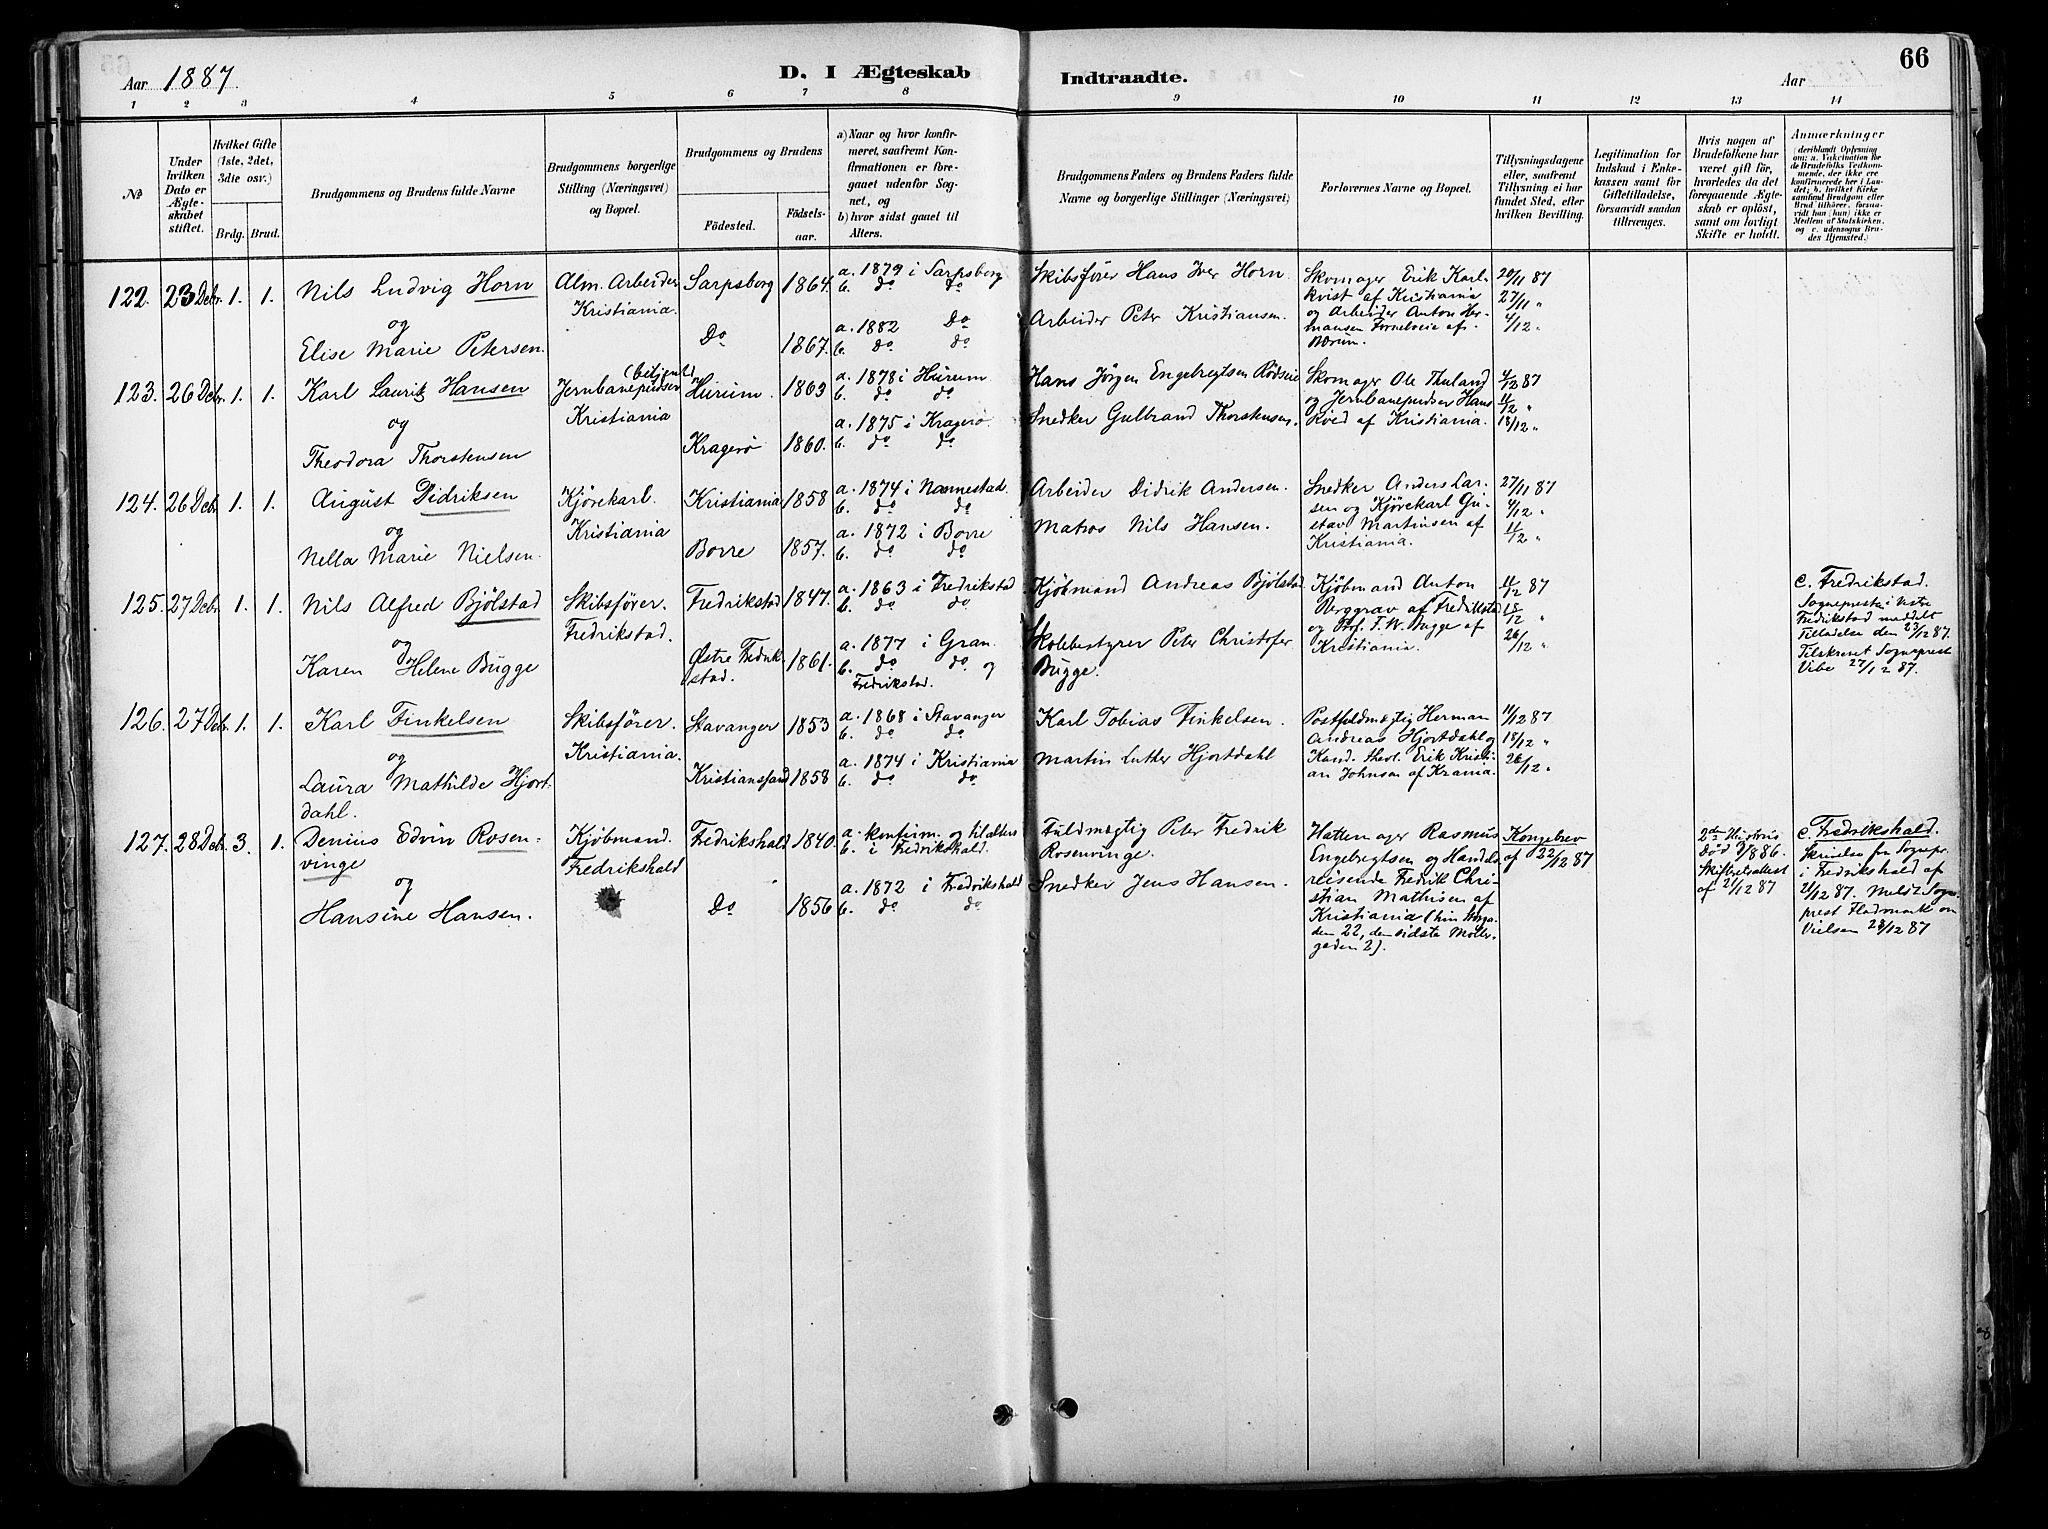 66
Aar 1887.
D. I Ægteskab
Indtraadte.
Aar
1 2 3 4 5 6 7 8 9 10 11 12 13 14
No
Under
hvilken
Dato er
Ægte-
skabet
stiftet.
Hvilket Gifte
(1ste, 2det,
3die osv.)
Brdg. Brud.
Brudgommens og Brudens fulde Navne
Brudgommens borgerlige
Stilling (Næringsvei)
og Bopæl.
Brudgommens og Brudens
Födested.
Födsels-
aar.
a) Naar og hvor konfir-
meret, saafremt Kon-
firmationen er fore-
gaaet udenfor Sog-
net, og
b) hvor sidst gaaet til
Alters.
Brudgommens Faders og Brudens Faders fulde
Navne og borgerlige Stillinger (Næringsvei)
Forlovernes Navne og Bopæl.
Tillysningsdagene
eller, saafremt
Tillysning ei har
fundet Sted, efter
hvilken Bevilling.
Legitimation for
Indskud i Enke-
kassen samt for
Giftetilladelse,
forsaavidt saadan
tiltrænges.
Hvis nogen af
Brudefolkene har
været gift för,
hvorledes da det
foregaaende Ægte-
skab er oplöst,
samt om lovligt
Skifte er holdt.
Anmærkninger
(deriblandt Oplysning
om: a. Vakcination for
de Brudefolks Vedkom-
mende, der ikke ere
konfirmerede her i Lan-
det; b. hvilket Kirke-
samfund Brudgom eller
Brud tilhörer, forsaa-
vidt han (hun) ikke er
Medlem af Statskirken,
og c. udensogns Bru-
des Hjemsted.)
122. 23 Debr. 1. 1.
Nils Ludvig Horn
og
Elise Marie Petersen.
Alm. Arbeider
Kristiania.
Sarpsborg 1864.
Do 1867.
a. 1879 i Sarpsborg
b. do do
a. 1882 Do
b. do do
Skibsförer Hans Iver Horn.
Arbeider Peter Kristiansen.
Skomager Erik Karl-
kvist af Kristiania
og Arbeider Anton Her-
mansen Forneboeie af
Bærum.
20/11 87
27/11 "
4/12 "
123. 26 Debr. 1. 1.
Karl Lauritz Hansen
og
Theodora Thorstensen
(betjent)
Jernbanepudser
Kristiania
Hurum. 1863
Kragerö 1860.
a. 1878 i Hurum
b. do do
a. 1875 i Kragerö.
b. do do
Hans Jörgen Engebregtsen Rödseie
Snedker Gulbrand Thorstensen.
Skomager Ole Thuland
og Jernbanepudser Hans
Roed af Kristiania.
4/12 87
11/12 "
18/12 "
124. 26 Debr. 1. 1.
August Didriksen
og
Nella Marie Nielsen.
Kjörekarl.
Kristiania
Kristiania 1858
Borre 1857.
a. 1874 i Nannestad.
b. do do
a. 1872 i Borre
b. do do
Arbeider Didrik Andersen.
Matros Nils Hansen.
Snedker Anders Lar-
sen og Kjörekarl Gu-
stav Martinsen af
Kristiania.
27/11 87
4/12 "
11/12 "
125. 27 Debr. 1. 1.
Nils Alfred Bjölstad
og
Karen Helene Bugge
Skibsförer.
Fredrikstad.
Fredrikstad 1847.
Östre Fredrik-
stad. 1861.
a. 1863 i Fredrikstad
b. do do
a. 1877 i Gran.
b. do do og
Fredrikstad.
Kjöbmand Andreas Bjölstad
Skolebestyrer Peter Christofer
Bugge.
Kjöbmand Anton
Berggrav af Fredrikstad
og Prof. F. W. Bugge af
Kristiania.
11/12 87
18/12 "
26/12 "
c. Fredrikstad.
Sognepresten i Vestre
Fredrikstad meddelt
Tilladelse den 23/12 87.
Tilskrevet Sogneprest
Vibe 27/12 87.
126. 27 Debr. 1. 1.
Karl Finkelsen
og
Laura Mathilde Hjort-
dahl.
Skibsförer.
Kristiania.
Stavanger 1853
Kristianssand 1858
a. 1868 i Stavanger
b. do do
a. 1874 i Kristiania
b. do do
Karl Tobias Finkelsen.
Martin Luther Hjortdahl
Postfuldmægtig Herman
Andreas Hjortdahl og
Kand. theol. Erik Kristi-
an Johnsen af Krania.
11/12 87
18/12 "
26/12 "
127. 28 Debr. 3. 1.
Denius Edvin Rosen-
vinge
og
Hansine Hansen.
Kjöbmand.
Fredrikshald
Fredrikshald 1840.
Do 1856
a. konfirm. og til alters
b. i Fredrikshald.
a. 1872 i Fredrikshald
b. do do
Fuldmægtig Peter Fredrik
Rosenvinge.
Snedker Jens Hansen.
Hattemager Rasmus
Engebregtsen og Handels-
reisende Fredrik Chri-
stian Mathisen af
Kristiania (hin Storga-
den 22, den sidste Möller-
gaden 2).
Kongebrev
af 22/12 87
2den Hustru
död 9/8 86.
Skifteattest
af 21/12 87
c. Fredrikshald.
Skrivelse fra Sognepr.
i Fredrikshald af
21/12 87. Meldt Sogne-
prest Fladmark om
Vielsen 28/12 87